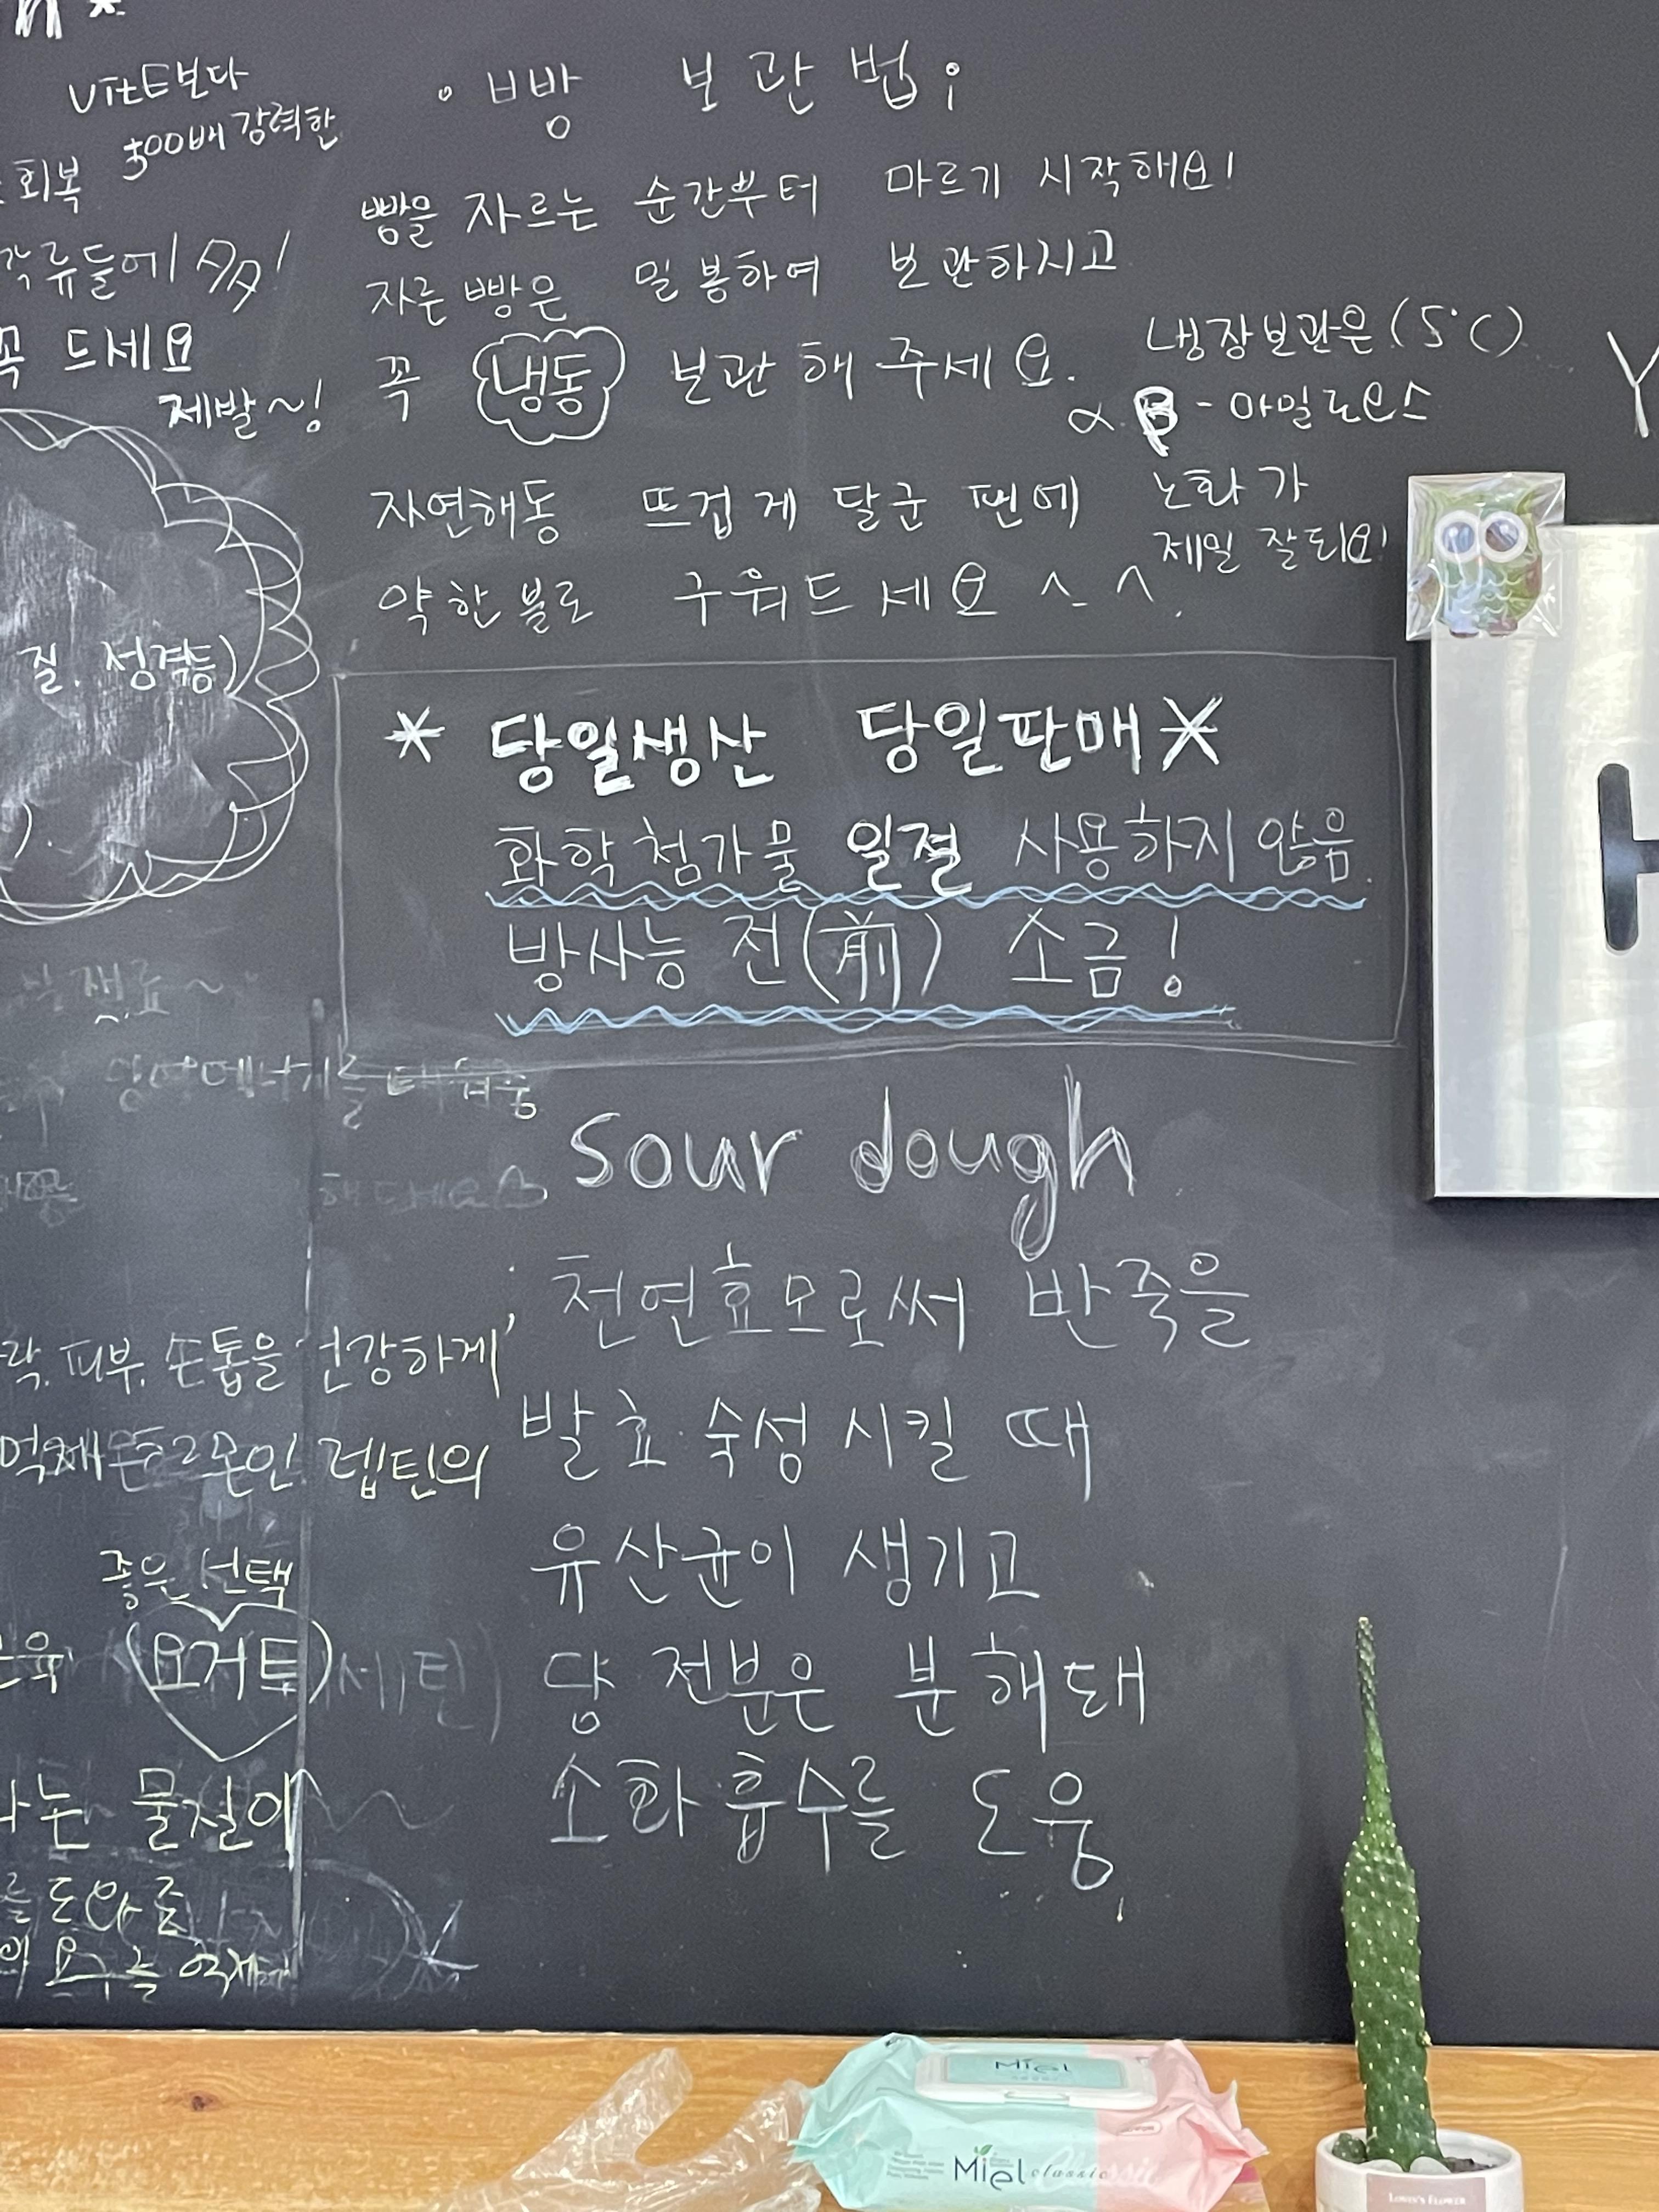 VitE보다
500배 강력한
회복
각류들에 多!
꼭 드세요
제발~!
질. 성격등)
· 빵 보관법;
빵을 자르는 순간부터 마르기 시작해요!
자른 빵은 밀봉하여 보관하시고
꼭 냉동 보관해 주세요.
냉장보관은 (5°C)
α. β-아밀로오스
노화가
제일 잘되요!
자연해동 뜨겁게 달군 팬에
약한 불로 구워드세요 ^-^.
* 당일생산 당일판매 *
화학첨가물 일절 사용하지 않음.
방사능 전(前) 소금!
sour dough
천연효모로써 반죽을
발효·숙성 시킬 때
유산균이 생기고
당 전분은 분해돼
소화흡수를 도움
락. 피부. 손톱을 건강하게
렙틴의
좋은 선택
(요거트)
세틴)
나는 물질이
를 도와줌
의 요구를 억제
H
Miel
Miel classic
LOVIN'S FLOWER